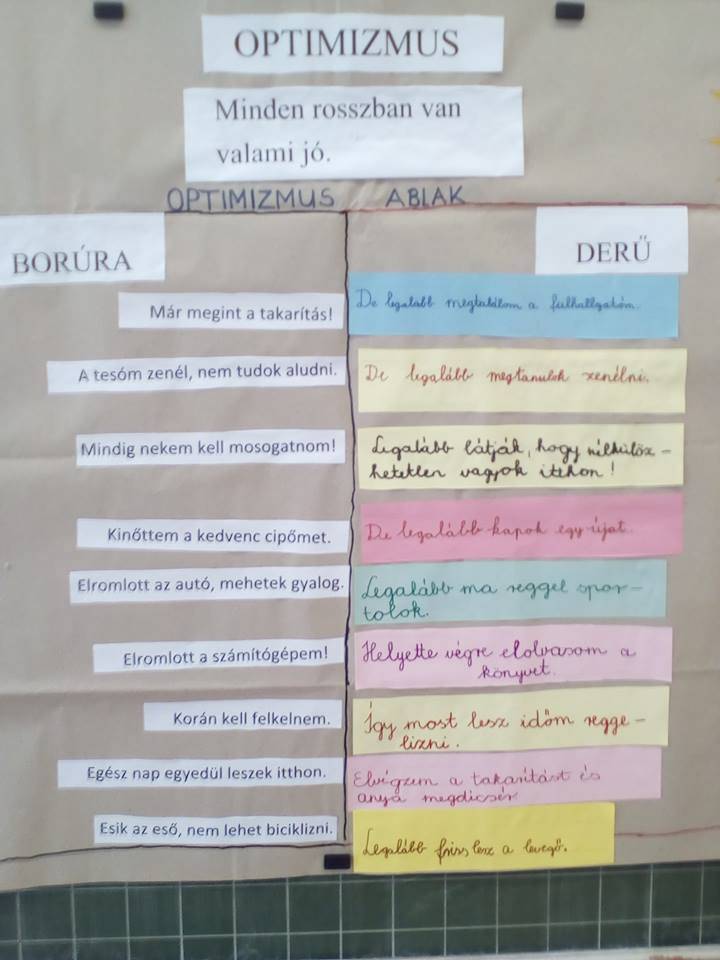 OPTIMIZMUS
Minden rosszban van
valami jó.
OPTIMIZMUS ABLAK
BORÚRA
DERŰ
Már megint a takarítás!
De legalább megtalálom a fülhallgatóm.
A tesóm zenél, nem tudok aludni.
De legalább megtanulok zenélni.
Mindig nekem kell mosogatnom!
Legalább látják, hogy nélkülöz-
hetetlen vagyok itthon!
Kinőttem a kedvenc cipőmet.
De legalább kapok egy újat.
Elromlott az autó, mehetek gyalog.
Legalább ma reggel spor-
tolok.
Elromlott a számítógépem!
Helyette végre elolvasom a
könyvet.
Korán kell felkelnem.
Így most lesz időm regge-
lizni.
Egész nap egyedül leszek itthon.
Elvégzem a takarítást és
anya megdicsér
Esik az eső, nem lehet biciklizni.
Legalább friss lesz a levegő.